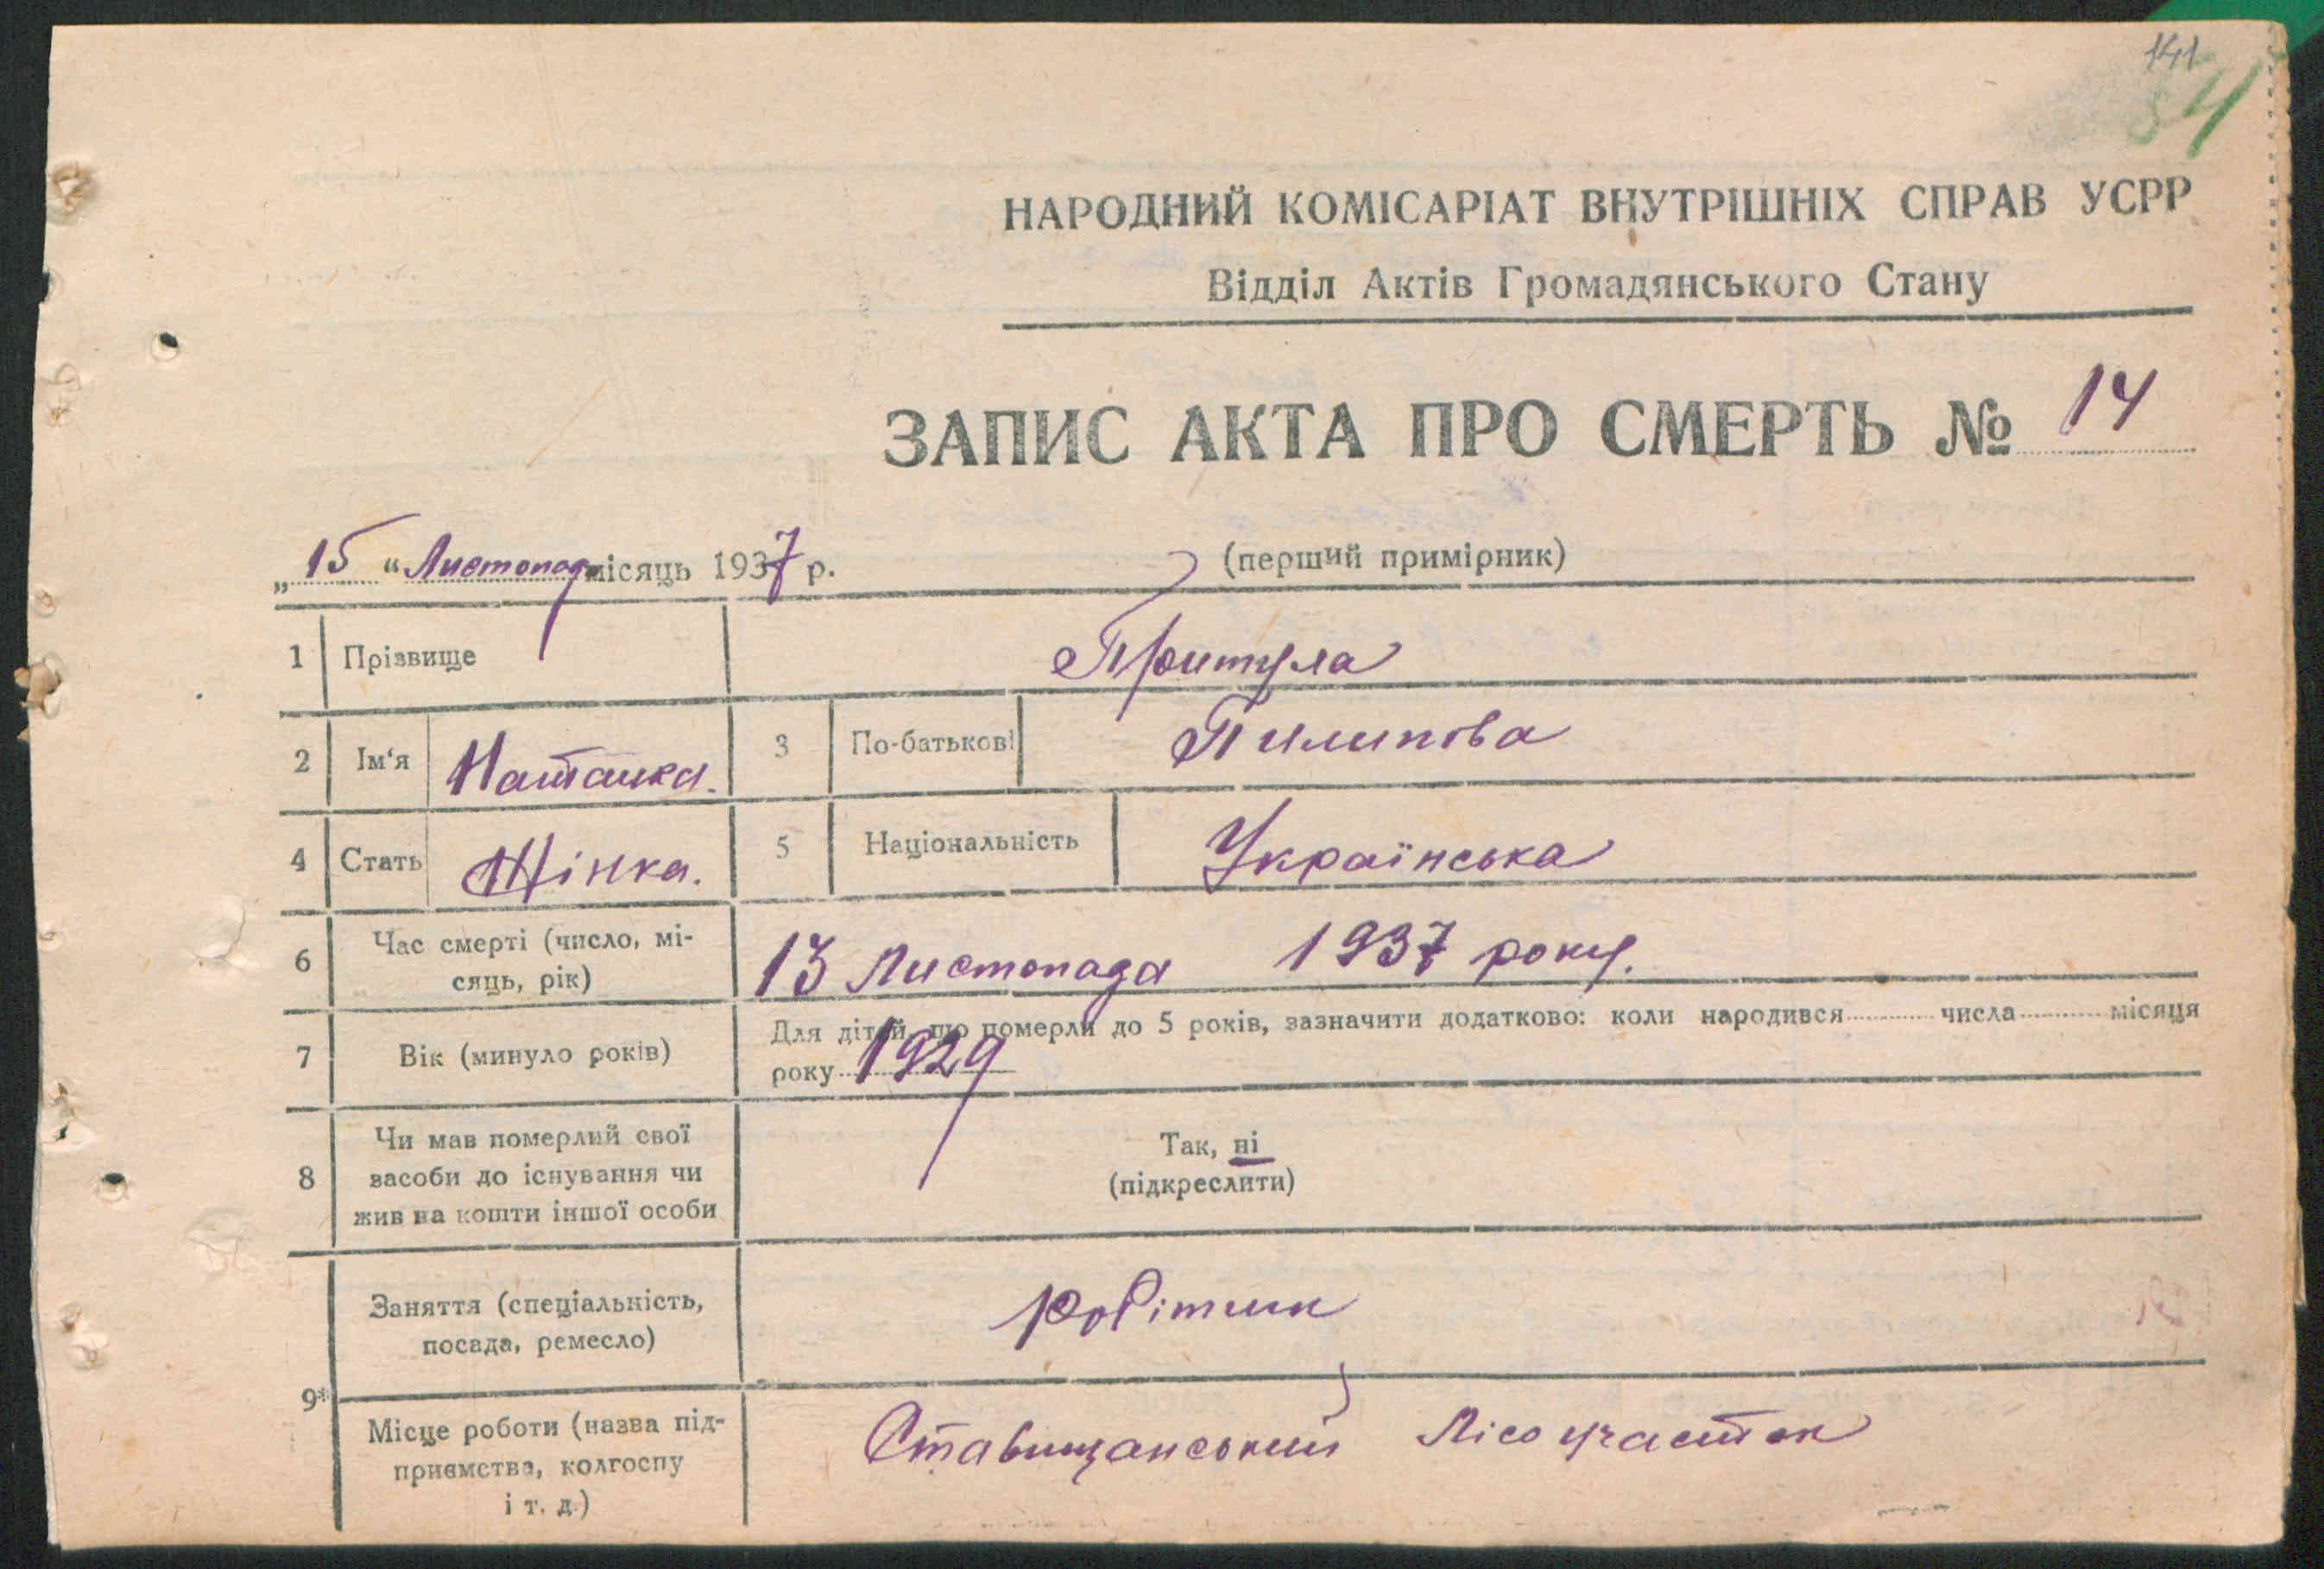 141
54
НАРОДНИЙ КОМІСАРІАТ ВНУТРІШНІХ СПРАВ УСРР
Відділ Актів Громадянського Стану
ЗАПИС АКТА ПРО СМЕРТЬ № 14
„15“ Листопад місяць 1937 р. (перший примірник)
1 Прізвище Притула
2 Ім‘я Наталка. 3 По-батькові Пилипова
4 Стать Жінка. 5 Національність Українська
6 Час смерті (число, мі-
сяць, рік) 13 Листопада 1937 року.
7 Вік (минуло років) Для дітей, що померли до 5 років, зазначити додатково: коли народився числа місяця
року 1929
8 Чи мав померлий свої
засоби до існування чи
жив на кошти іншої особи
Так, ні
(підкреслити)
9* Заняття (спеціальність,
посада, ремесло) робітник
Місце роботи (назва під-
приємства, колгоспу
і т. д.) Ставищанський Лісоучасток